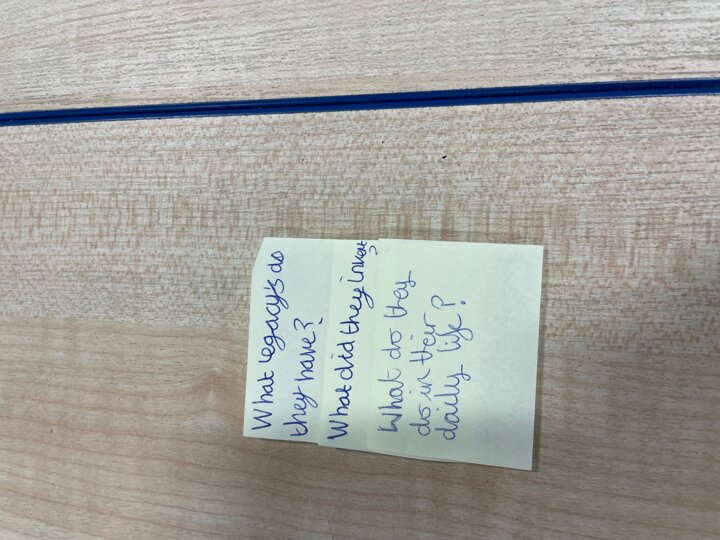 What legacy's do
they have?
What did they invent
?
What do they
do in their
daily life?